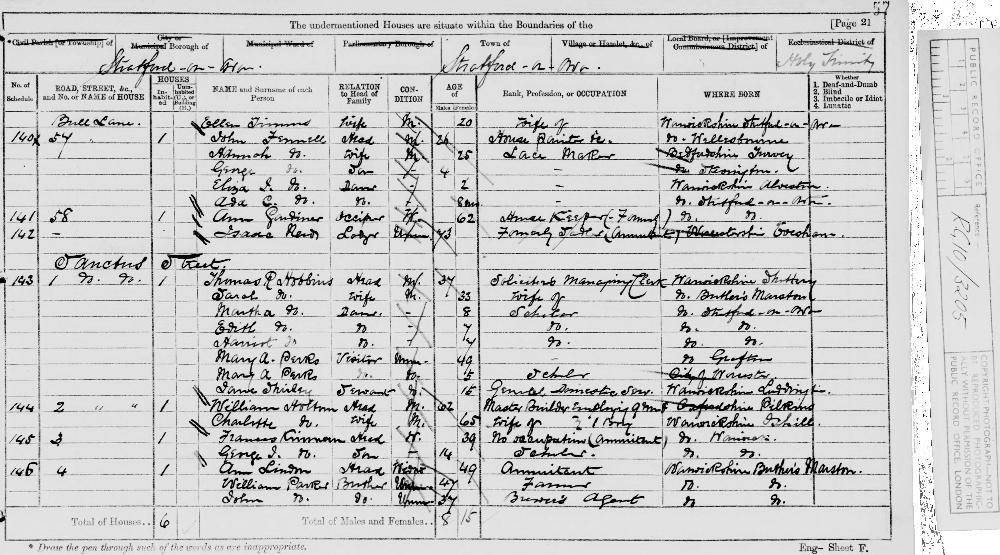 57
The undermentioned Houses are situate within the Boundaries of the [Page 21
*Civil Parish [or Township] of City or Municipal Borough of Municipal Ward of Parliamentary Borough of Town of Village or Hamlet, &c., of Local Board, or [Improvement Commissioners District] of Ecclesiastical District of
Stratford-on-Avon Stratford-on-Avon Holy Trinity
No. of Schedule ROAD, STREET, &c., and No. or NAME of HOUSE HOUSES Inhabited Uninhabited (U.), or Building (B.) NAME and Surname of each Person RELATION to Head of Family CONDITION AGE of Males Females Rank, Profession, or OCCUPATION WHERE BORN Whether 1. Deaf-and-Dumb 2. Blind 3. Imbecile or Idiot 4. Lunatic
Bull Lane. Ellen Timms Wife M. 20 Wife of Warwickshire Stratford-on-Avon
140 57 1 John Fennell Head M. 26 House Painter &c. Do. Wellesbourne
Hannah Do. Wife M. 25 Lace Maker Bedfordshire Turvey
George Do. Son - 4 - Do. Stevington.
Eliza J. Do. Daur - 2 - Warwickshire Alveston.
Ada C. Do. Do. - 8 mos - Do. Stratford-on-Avon.
141 58 1 Ann Gardiner Occupier W. 62 House Keeper (Formerly) Do. Do.
142 - Isaac Lodger Unm. 73 Formerly (Annuitant) Worcestershire Evesham.
Sanctus Street.
143 1 Do. Do. 1 Thomas R Hobbins Head M. 37 Solicitors Managing Clerk Warwickshire Shottery
Sarah Do. Wife M. 33 Wife of Do. Butlers Marston
Martha Do. Daur. - 8 Scholar Do. Stratford-on-Avon
Edith Do. Do - 7 Do. Do. Do.
Harriot Do Do - 4 Do. Do. Do.
Mary A. Perks Visitor Unm. 49 - Do Grafton
Mary A. Perks Do. Do. 5 Scholar City of Worcester
Jane Servant Do. 15 General Domestic Serv. Warwickshire Luddington
144 2 " " 1 William Holtom Head M. 62 Master Builder Employing 9 Men & 1 Boy
Charlotte Do. Wife M. 65 Wife of Warwickshire
145 3 1 Frances Head W. 39 No occupation (Annuitant) Do. Warwick.
George J. Do. Son - 14 Scholar. Do. Do.
146 4 1 Ann Lindon Head Widow 49 Annuitant Warwickshire Butlers Marston.
William Parker Brother 47 Farmer Do. Do.
John Do. Do. Unm 37 Brewers Agent Do. Do.
Total of Houses.. 6 Total of Males and Females.. 8 15
* Draw the pen through such of the words as are inappropriate. Eng- Sheet F.
PUBLIC RECORD OFFICE
Reference:-
RG10/3205
COPYRIGHT PHOTOGRAPH-NOT TO BE REPRODUCED PHOTOGRAPHICALLY WITHOUT PERMISSION OF THE PUBLIC RECORD OFFICE, LONDON